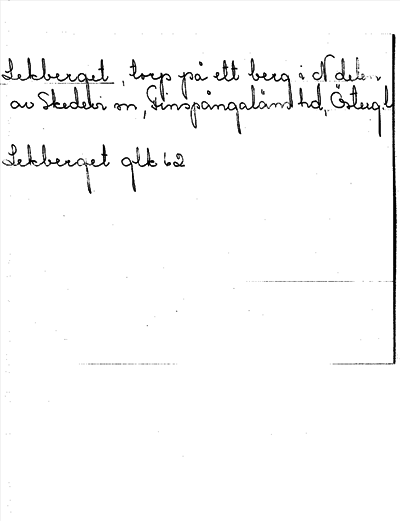 Lekberget, torp på ett berg i N delen
av Skedevi sn, Finspångaläns hd, Östergl
Lekberget glk 62